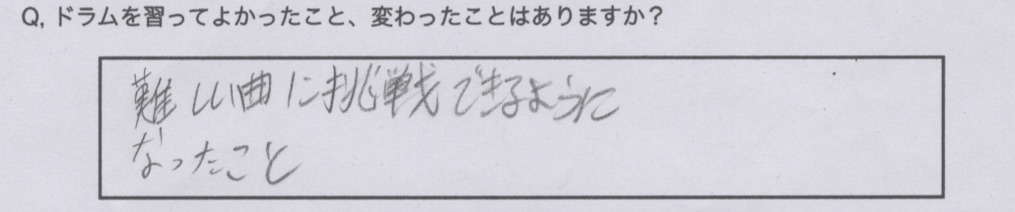 Q, ドラムを習ってよかったこと、変わったことはありますか？
難しい曲に挑戦できるように
なったこと